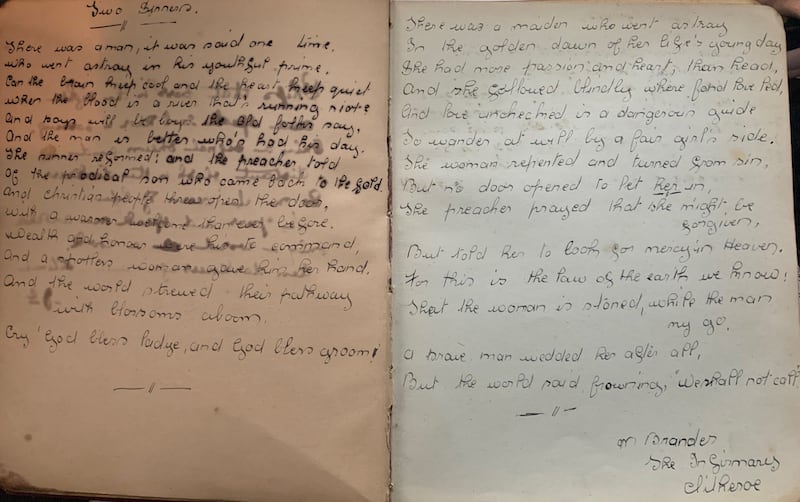 Two Sinners.
There was a man, it was said one time,
who went astray in his youthful prime.
Can the brain keep cool and the heart keep quiet
when the blood is a river that's running riote
And boys will be boys the old folks say,
And the man is better who's had his day.
The sinner reformed; and the preacher told
Of the prodical son who came back to the fold.
And christian people threw open the door,
with a warmer welcome than ever before.
Wealth and honour were his to command,
And a spotless woman gave him her hand.
And the world strewed their pathway
with blossoms abloom.
Cry 'God bless ladye, and God bless groom!
There was a maiden who went astray
In the golden dawn of her life's young day
She had more passion and heart, than head,
And she followed blindly where fond love led,
And love unchecked is a dangerous guide
To wander at will by a fair girl's side.
The woman repented and turned from sin,
But no door opened to let her in,
The preacher prayed that she might be
forgiven,
But told her to look for mercy in Heaven.
For this is the law of the earth we know:
That the woman is stoned, while the man
my go.
A brave man wedded her after all,
But the world said frowning, "We shall not call".
M Brander
The Infirmary
Clitheroe